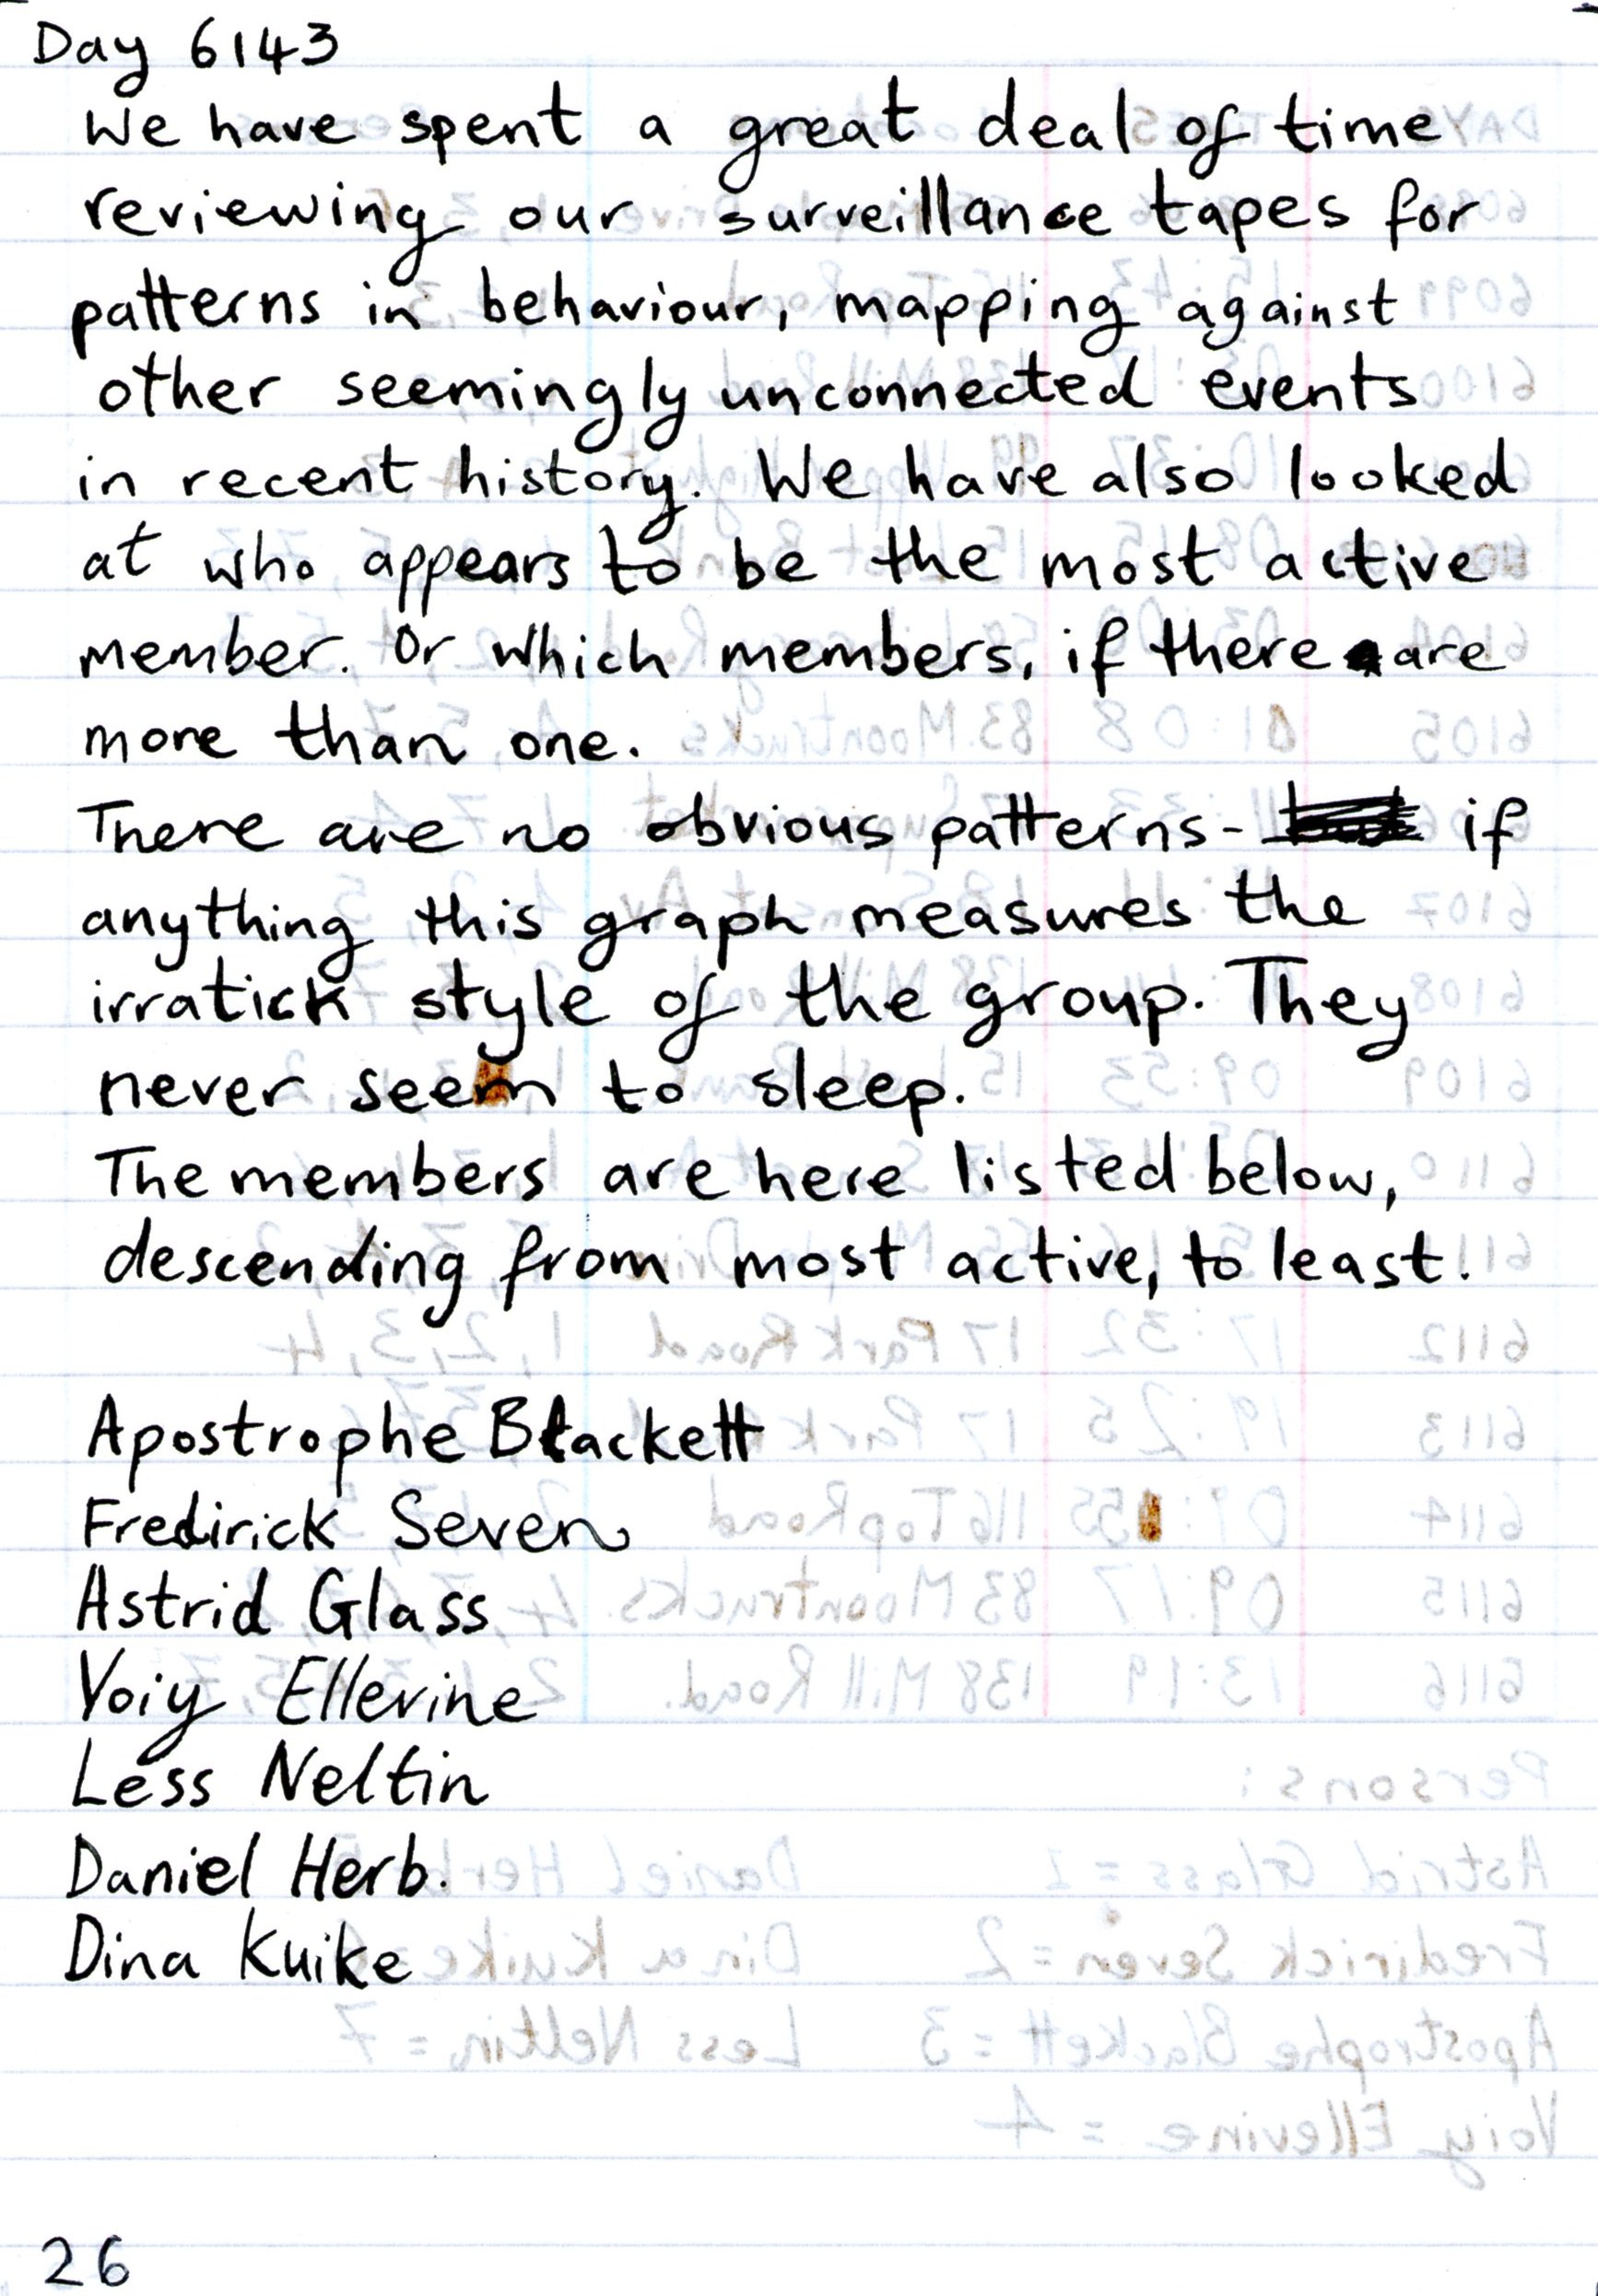 Day 6143
We have spent a great deal of time
reviewing our surveillance tapes for
patterns in behaviour, mapping against
other seemingly unconnected events
in recent history. We have also looked
at who appears to be the most active
member. Or which members, if there are
more than one.
There are no obvious patterns - if
anything this graph measures the
irratick style of the group. They
never seem to sleep.
The members are here listed below,
descending from most active, to least.
Apostrophe Blackett
Fredirick Seven
Astrid Glass
Voiy Ellevine
Less Neltin
Daniel Herb.
Dina Kuike
26